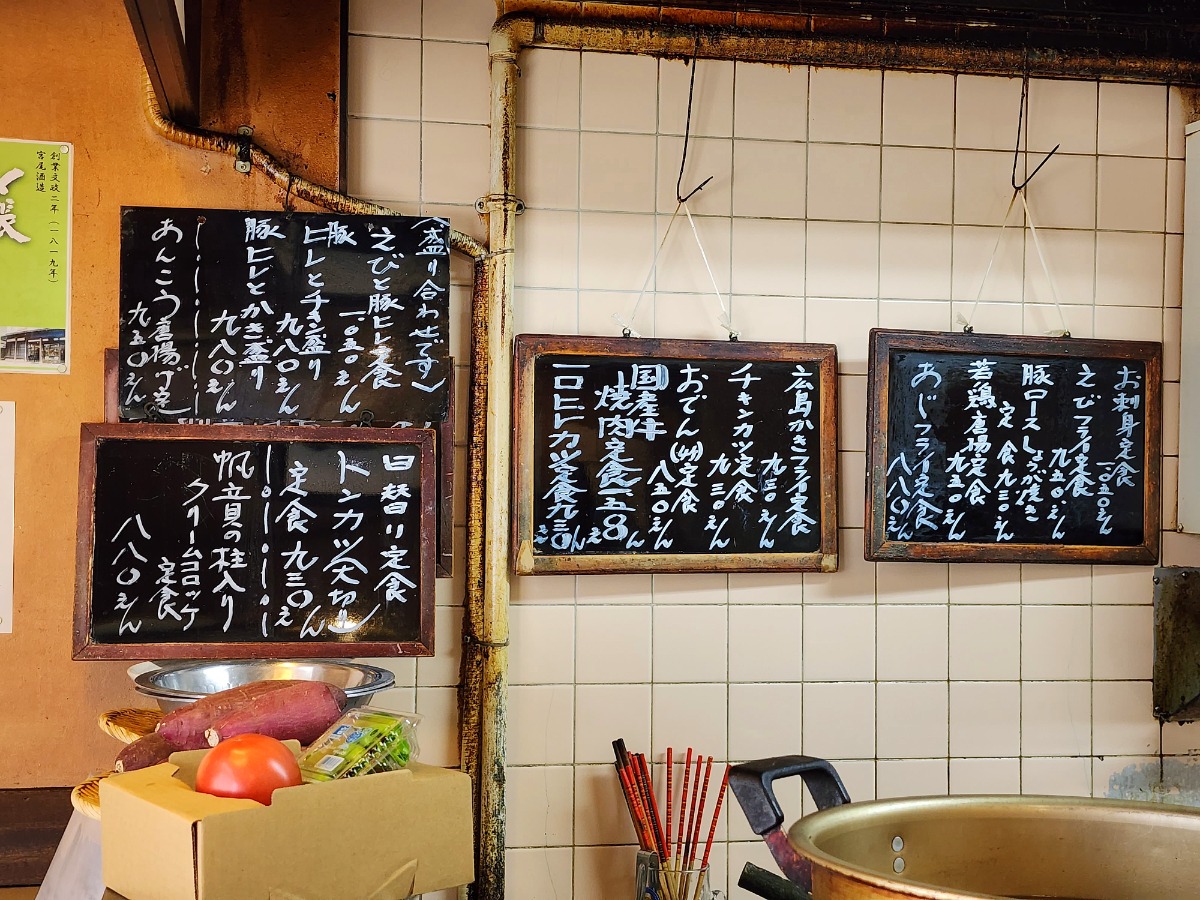 創業文政二年(一八一九年)
宮尾酒造
(盛り合わせです)
えびと豚ヒレ定食
一〇五〇えん
豚ヒレとチキン盛り
九八〇えん
豚ヒレとかき盛り
九八〇えん
あんこう唐揚げ定
九五〇えん
日替り定食
トンカツ(大切り)
定食 九三〇えん
帆立貝の柱入り
クリームコロッケ
定食
八八〇えん
広島かきフライ定食
九三〇えん
チキンカツ定食
九三〇えん
おでん(州)定食
八五〇えん
国産牛
焼肉定食一五〇えん
一口ヒレカツ定食九三〇えん
お刺身定食
一〇五〇えん
えびフライ定食
九五〇えん
豚ロースしょうが焼き
定食九三〇えん
若鶏唐揚定食
九五〇えん
あじフライ定食
八八〇えん